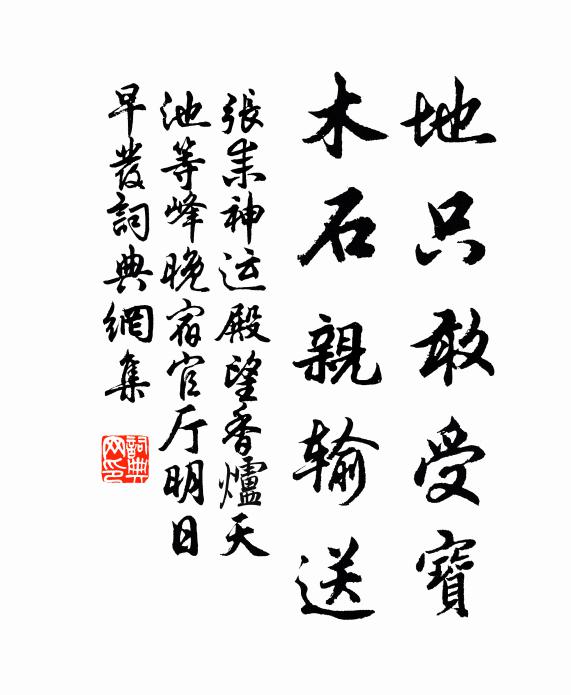 地只敢受寶
木石親输送
張耒神运殿望香爐天
池等峰晚宿官厅明日
早發詞典網集
詞典
网印